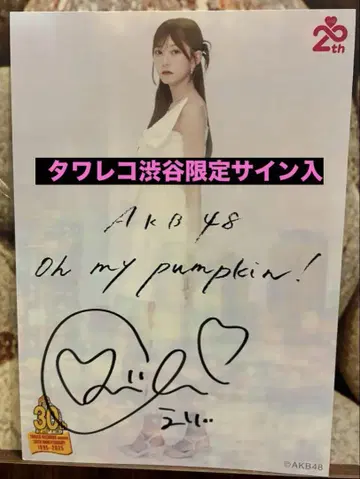 20th
タワレコ渋谷限定サイン入
AKB48
Oh my pumpkin!
30
1995-2025
©AKB48